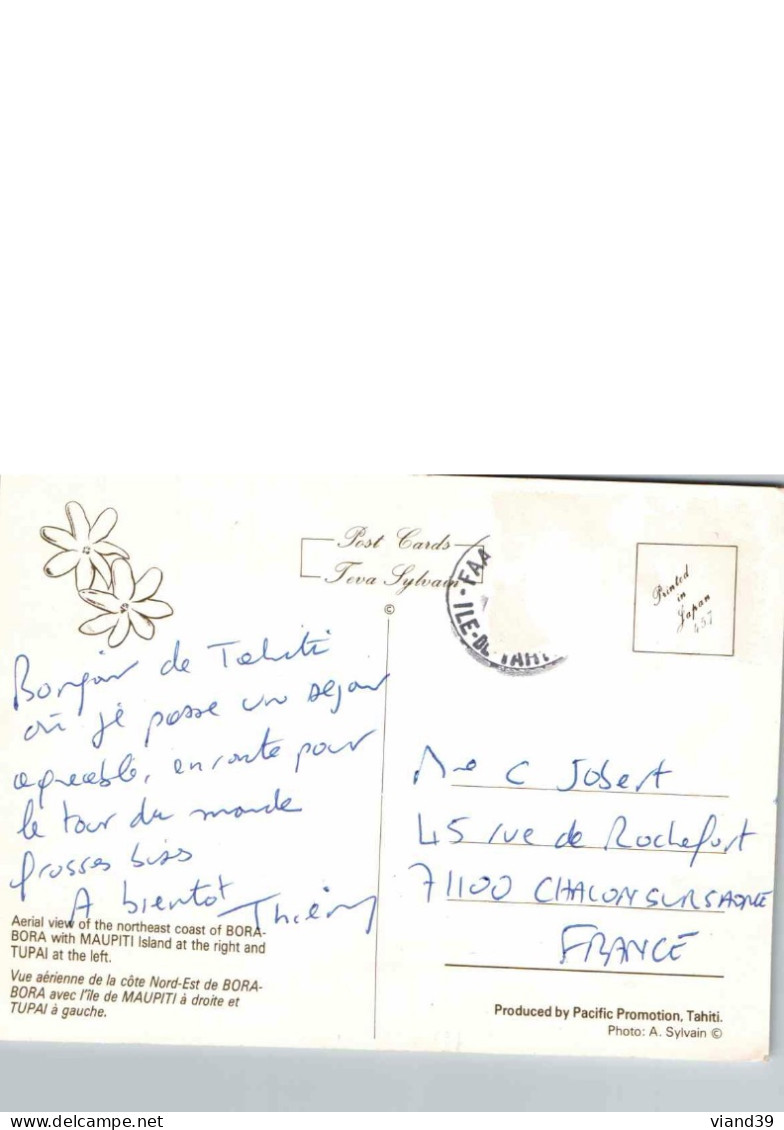 Post Cards
Teva Sylvain
©
FAA
ILE-DE TAHITI
Printed
in
Japan
457
Bonjour de Tahiti
où je passe un séjour
agréable, en route pour
le tour du monde
grosses bises
A bientot Thierry
Aerial view of the northeast coast of BORA-
BORA with MAUPITI Island at the right and
TUPAI at the left.
Vue aérienne de la côte Nord-Est de BORA-
BORA avec l'île de MAUPITI à droite et
TUPAI à gauche.
Me C Jobert
45 rue de Rochefort
71100 CHALON SUR SAONE
FRANCE
Produced by Pacific Promotion, Tahiti.
Photo: A. Sylvain ©
www.delcampe.net
viand39